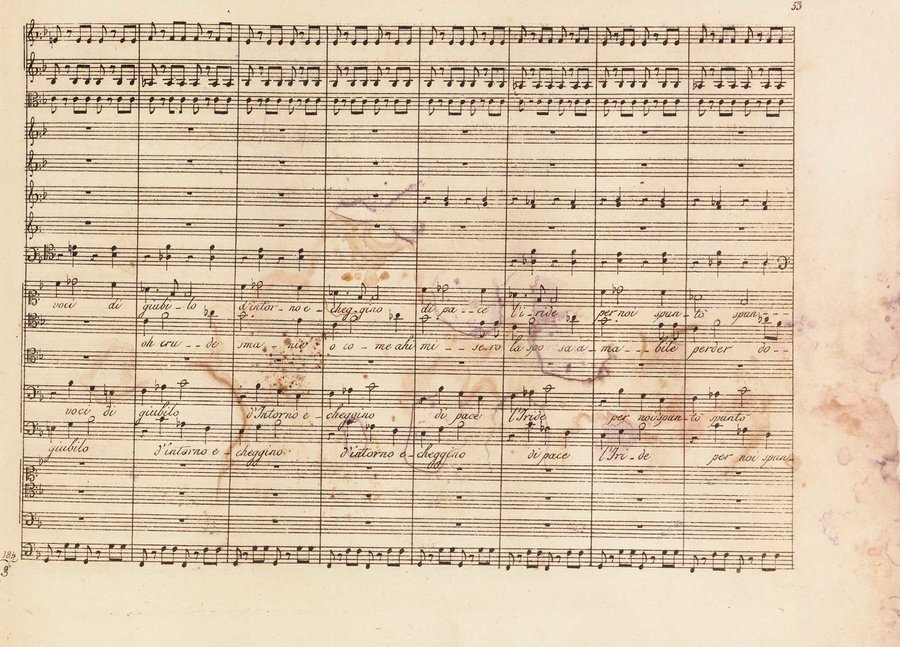 53
voci di giubi - lo d'intor - no e - cheg - gino di pa - - ce l'i - ride per noi spun - tò spun -
oh cru - - de sma - nie o co - me ahi mi - se - ro la spo sa a - ma - - bile perder do - -
voci di giubilo d'Intorno e - cheggino di pace l'Iride per noi spun - tò spuntò
giubilo d'intorno e - cheggino d'intorno e - cheggino di pace l'Iri - de per noi spun -